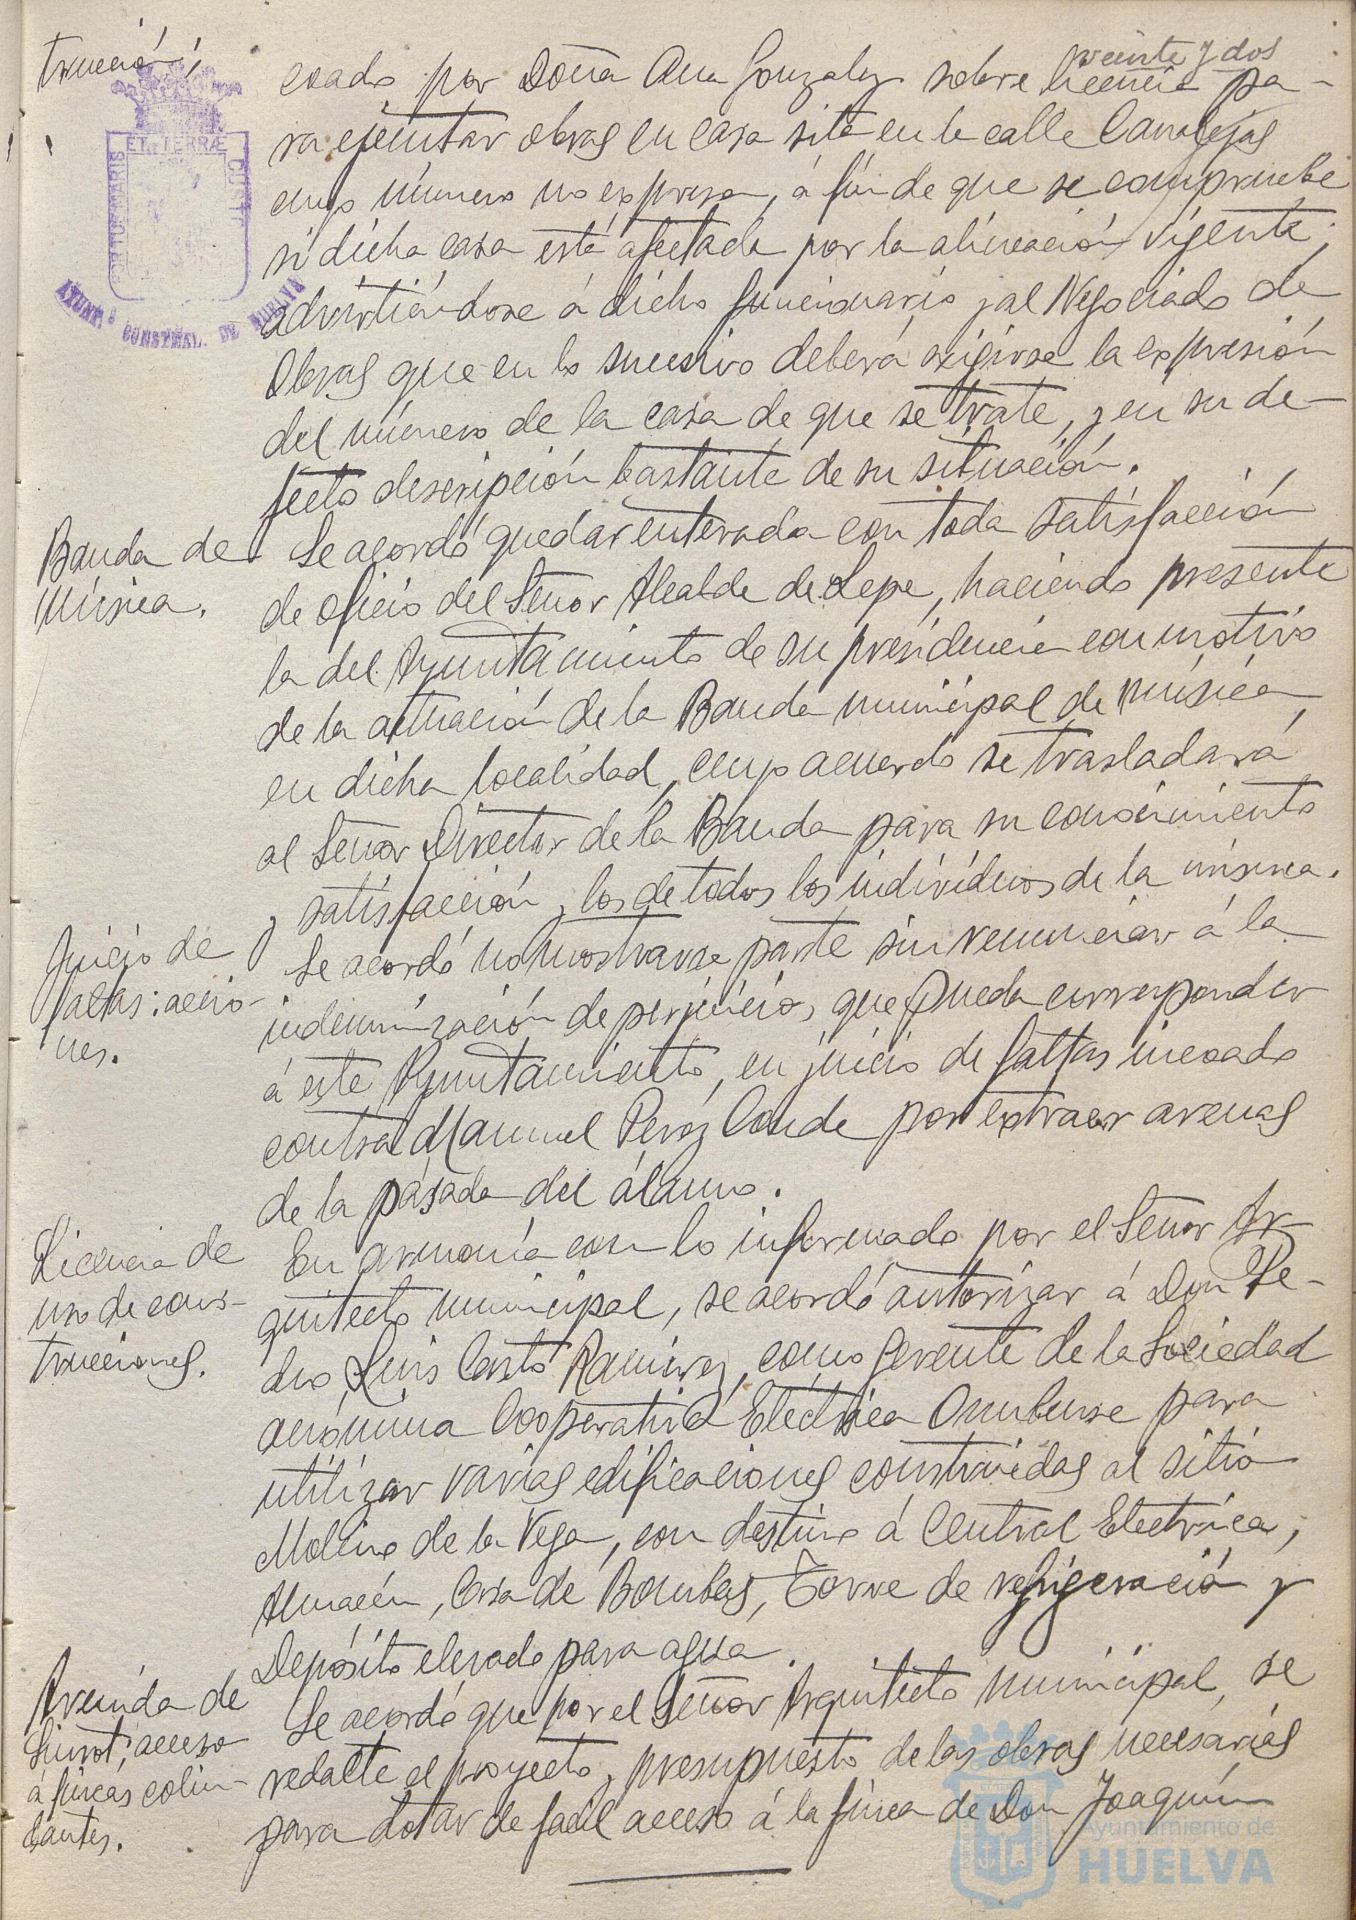 veinte y dos
trucción;
coado por Doña Ana Gonzalez sobre licencia pa-
ra ejecutar obras en casa sita en la calle Canalejas
cuyo número no expresa, á fin de que se compruebe
si dicha casa está afectada por la alineación vigente;
advirtiéndose á dicho funcionario y al Negociado de
Obras que en lo sucesivo deberá exigirse la expresión
del número de la casa de que se trate, y en su de-
fecto descripción bastante de su situación.
PORTUS MARIS ET TERRÆ CUSTODIA
AYUNT.º CONSTNAL. DE HUELVA
Banda de
Música.
Se acordó quedar enterada con toda satisfacción
de oficio del Señor Alcalde de Lepe, haciendo presente
la del Ayuntamiento de su presidencia con motivo
de la actuación de la Banda municipal de música,
en dicha localidad, cuyo acuerdo se trasladará
al Señor Director de la Banda para su conocimiento
y satisfacción y los de todos los individuos de la misma.
Juicio de
faltas: accio-
nes.
Se acordó no mostrarse parte sin renunciar á la
indemnización de perjuicios que pueda corresponder
á este Ayuntamiento, en juicio de faltas incoado
contra Manuel Peréz Conde por extraer arenas
de la pasada del álamo.
Licencia de
uso de cons-
trucciones.
En armonía con lo informado por el Señor Ar-
quitecto municipal, se acordó autorizar á Don Pe-
dro Luis Casto Ramirez, como gerente de la Sociedad
anónima Cooperativa Eléctrica Onubense para
utilizar varias edificaciones construidas al sitio
Molino de la Vega, con destino á Central Electrica,
Almacén, Casa de Bombas, Torre de refrigeración y
Depósito elevado para agua.
Avenida de
acceso
á fincas colin-
dantes.
Se acordó que por el Señor Arquitecto municipal, se
redacte el proyecto y presupuesto de las obras necesarias
para dotar de facil acceso á la finca de Don Joaquín
Ayuntamiento de
HUELVA